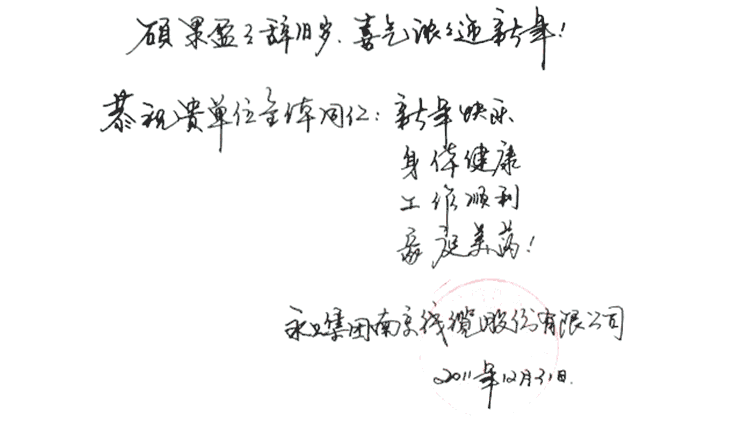 硕果盈盈辞旧岁、喜气浓浓迎新年！
恭祝贵单位全体同仁：新年快乐
身体健康
工作顺利
家庭美满！
集团南京线缆股份有限公司
2011年12月31日.